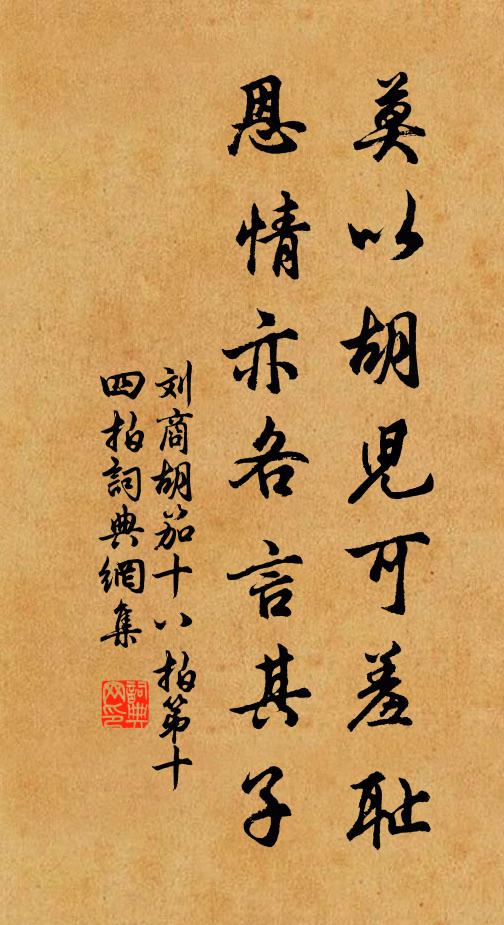 莫以胡児可羞耻
恩情亦各言其子
刘商胡笳十八拍第十
四拍詞典網集
詞典网印